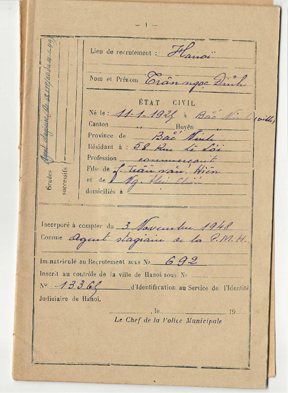 — 1 —
Lieu de recrutement : Hanoï
Nom et Prénom Trần ngọc Định
ÉTAT CIVIL
Né le : 11.1.1925 à Bắc Ninh (ville)
Canton Huyện
Province de Bắc Ninh
Résidant à : 58 Rue
Profession commerçant
Fils de : Trần văn Hiên
et de :
domiciliés à
Grades
successifs
Incorporé à compter du 3 Novembre 1948
Comme Agent stagiaire de la P.M.H.
Immatriculé au Recrutement sous No 692
Inscrit au contrôle de la ville de Hanoi sous No
No 13365 d'Identification au Service de l'Identité
Judiciaire de Hanoi.
, le 19
Le Chef de la Police Municipale